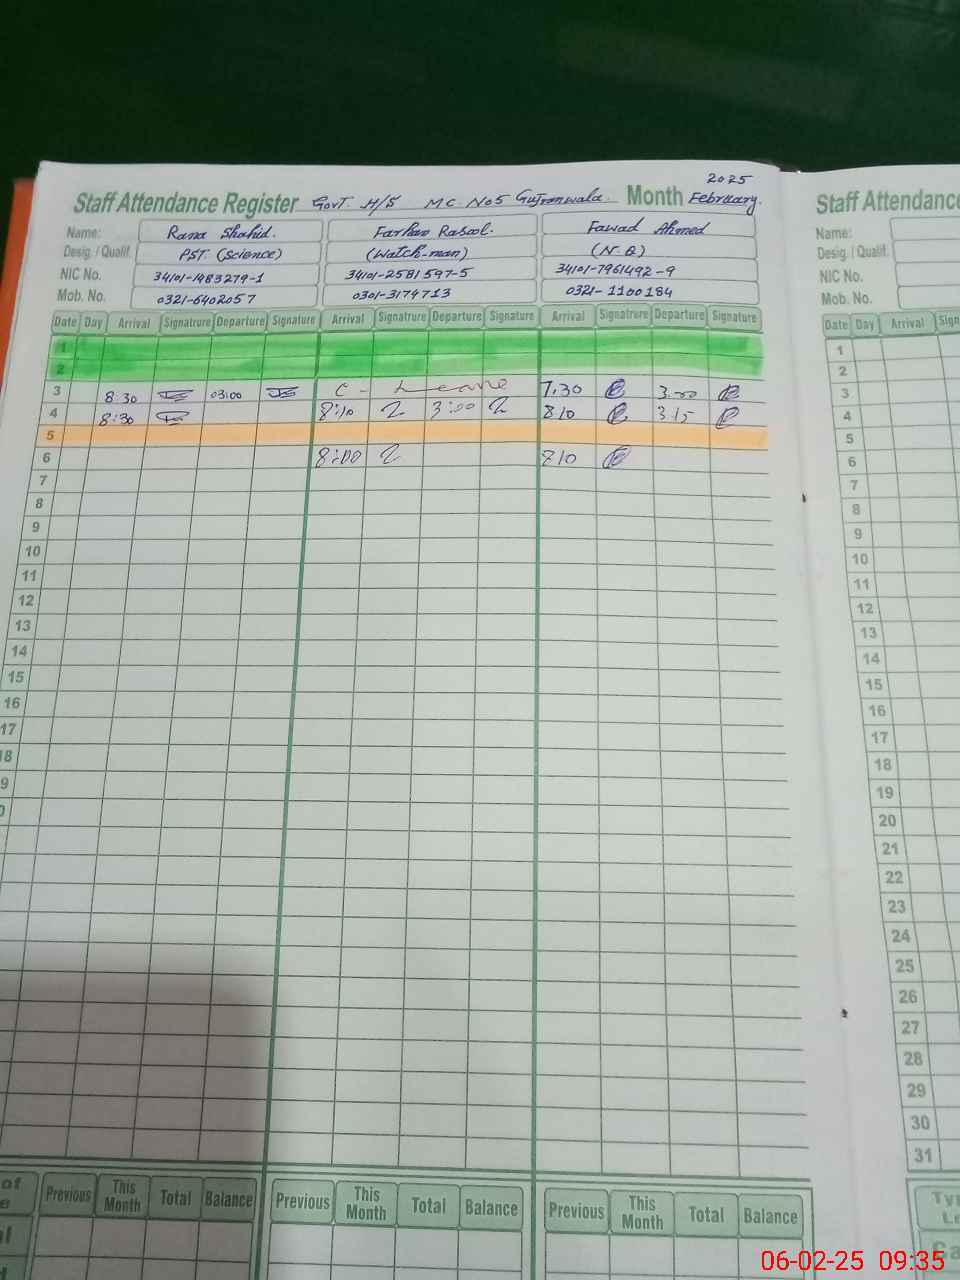 2025
Staff Attendance Register Govt. H/S MC No5 Gujranwala. Month February.
Name: Rana Shahid. Farhan Rasool. Fawad Ahmed
Desig. / Qualif. PST. (Science) (Watch-man) (N.Q)
NIC No. 34101-1483279-1 34101-2581597-5 34101-7961492-9
Mob. No. 0321-6402057 0301-3174713 0321-1100184
Date Day Arrival Signatrure Departure Signature Arrival Signatrure Departure Signature Arrival Signatrure Departure Signature
1
2
3 8:30 03:00 C- Leave 7.30 3:00
4 8:30 8:10 3:00 810 3.15
5
6 8:00 810
7
8
9
10
11
12
13
14
15
16
17
18
9
0
of Previous This Month Total Balance Previous This Month Total Balance Previous This Month Total Balance
e
Staff Attendanc
Name:
Desig. / Qualif.
NIC No.
Mob. No.
Date Day Arrival Sign
1
2
3
4
5
6
7
8
9
10
11
12
13
14
15
16
17
18
19
20
21
22
23
24
25
26
27
28
29
30
31
Ty
Le
Ca
06-02-25 09:35